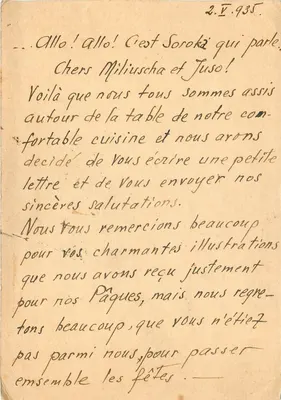 2. V. 935.
...Allo! Allo! C'est Soroka qui parle.
Chers Miliuscha et Juso!
Voilà que nous tous sommes assis
autour de la table de notre com-
fortable cuisine et nous avons
decidé de vous écrire une petite
lettre et de vous envoyer nos
sincères salutations.
Nous vous remercions beaucoup
pour vos charmantes illustrations
que nous avons reçu justement
pour nos Pâques, mais nous regre-
tons beaucoup, que vous n'étiez
pas parmi nous, pour passer
emsemble les fêtes. —